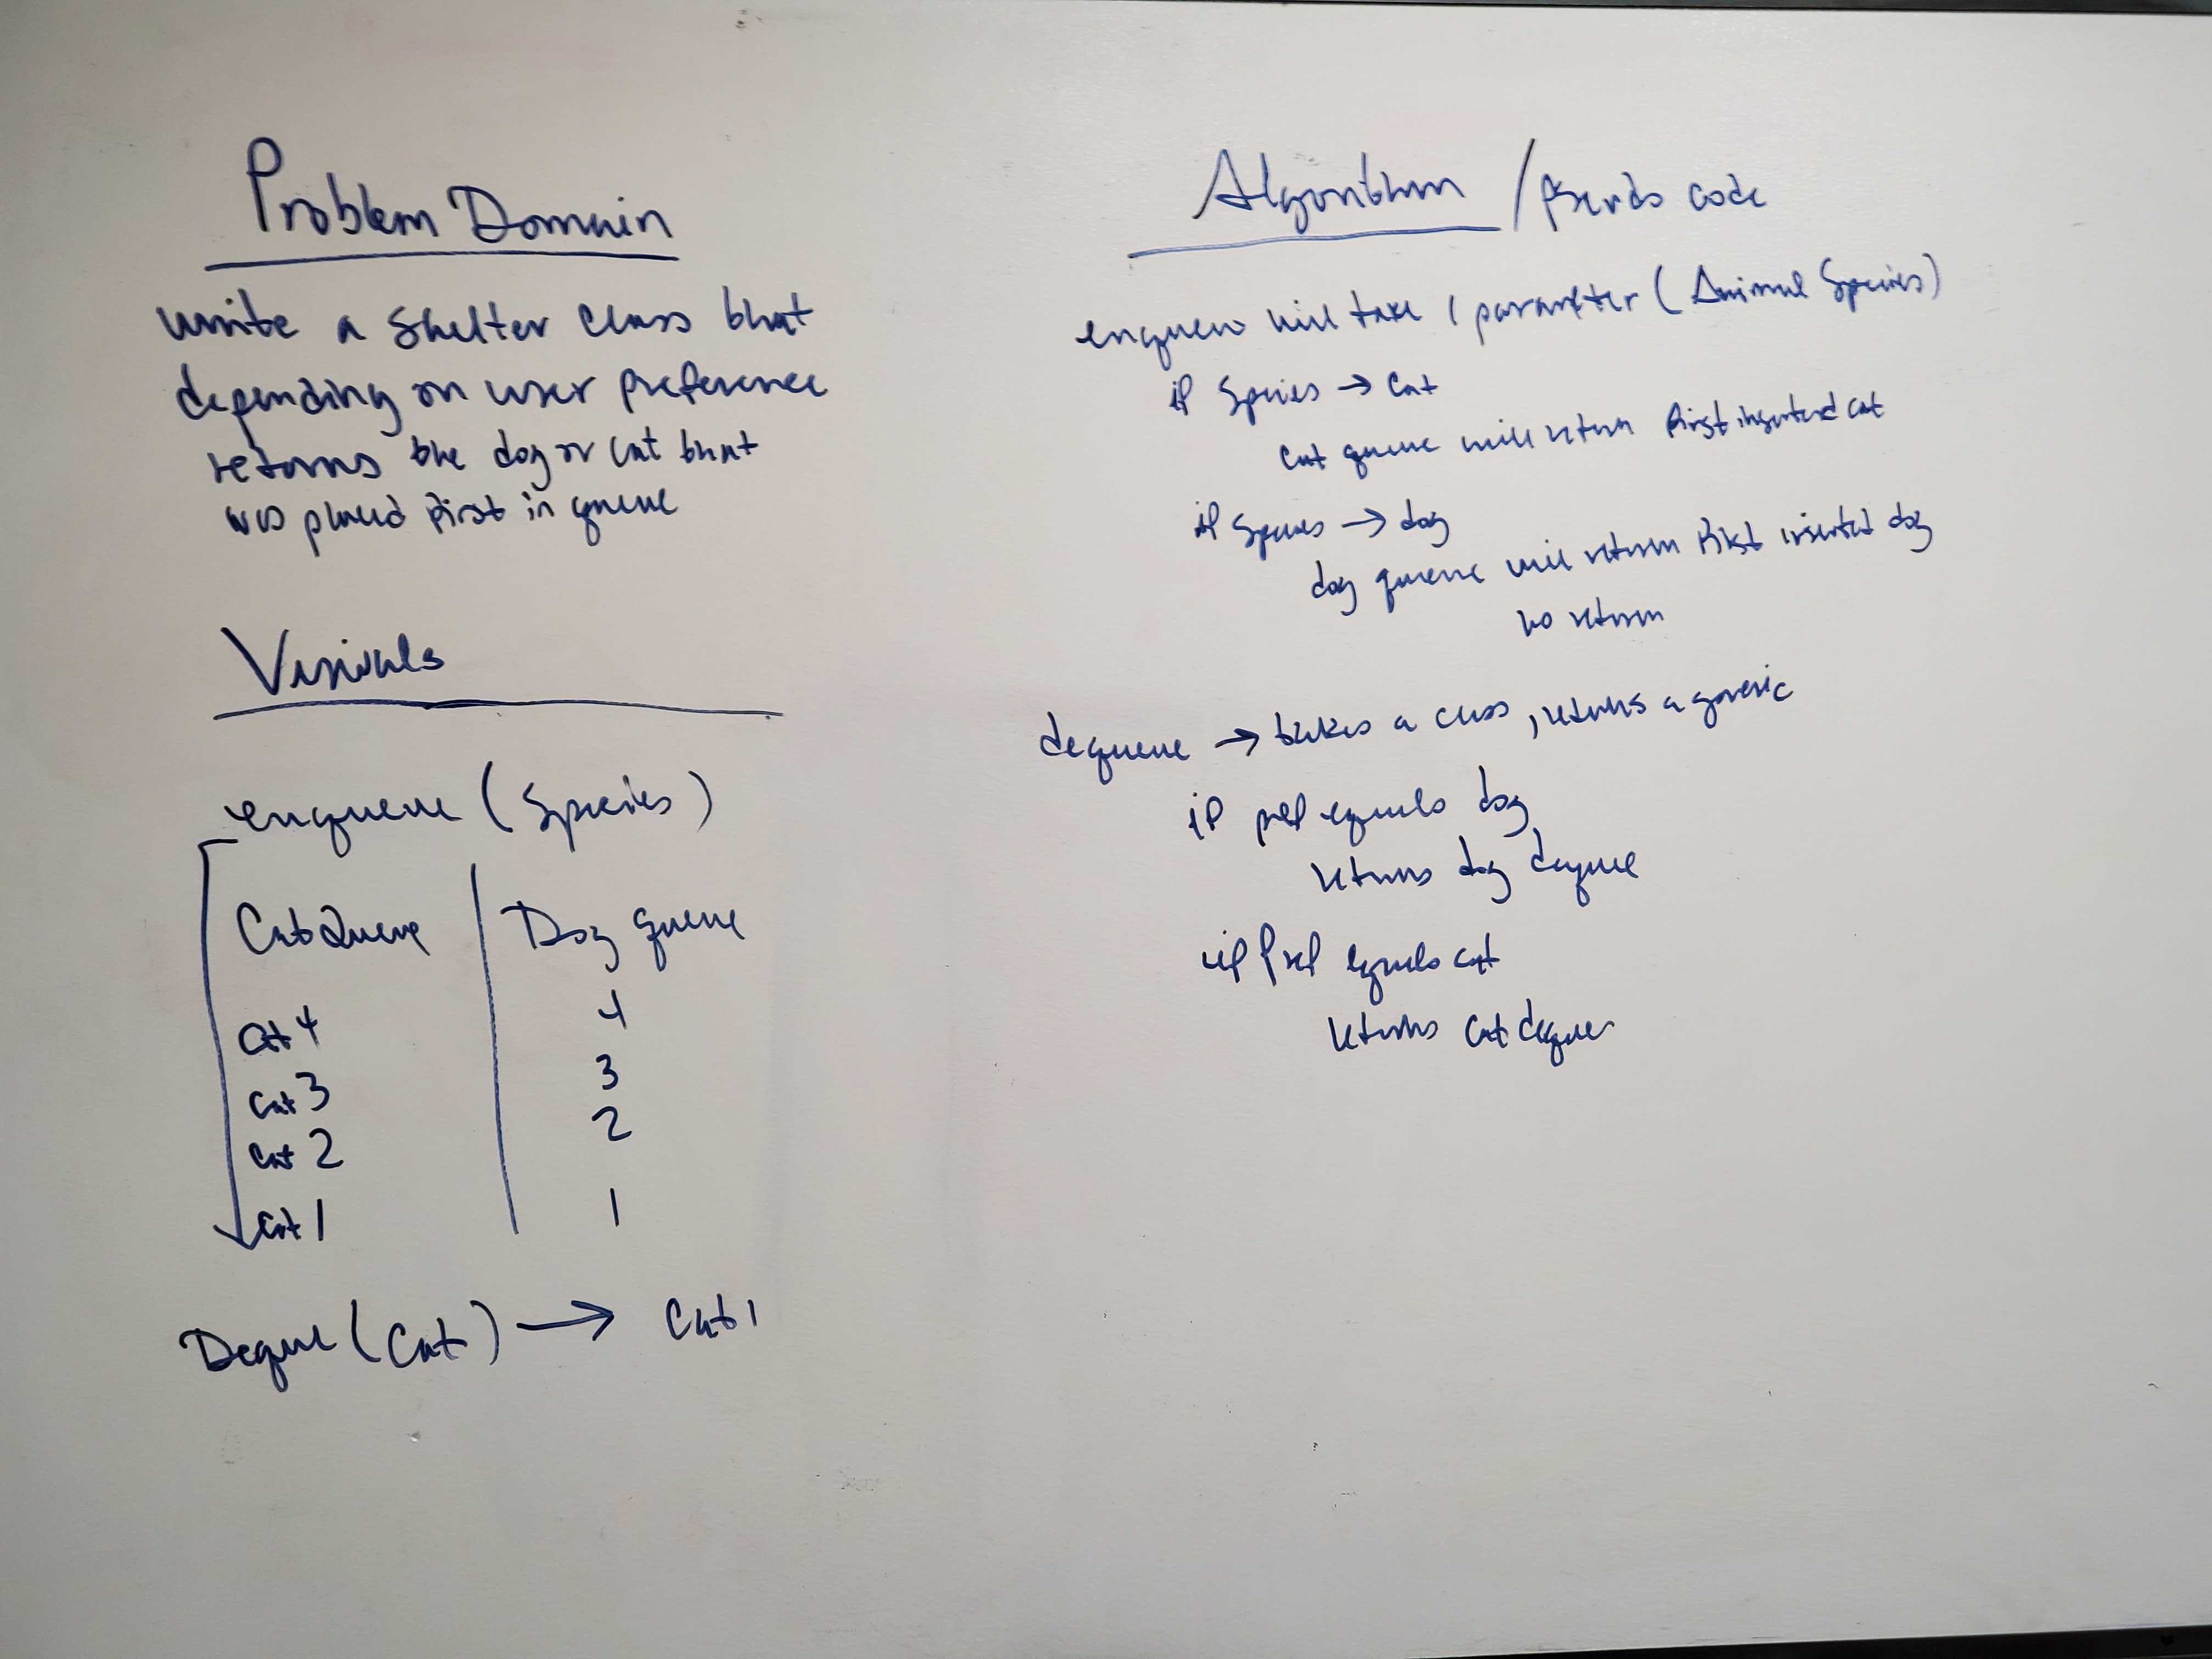 Problem Domain
write a Shelter class that
depending on user preference
returns the dog or cat that
was placed first in queue
Visuals
enqueue (Species)
CatQueue | Dog queue
Cat 4 4
Cat 3 3
Cat 2 2
Cat 1 1
Deque (Cat) → Cat 1
Algorithm / Pseudo code
enqueue will take 1 parameter (Animal Species)
if Species → Cat
Cat queue will return first inserted cat
if Species → dog
dog queue will return first inserted dog
no return
dequeue → takes a class, returns a generic
if pref equals dog
returns dog deque
if pref equals cat
returns cat deque